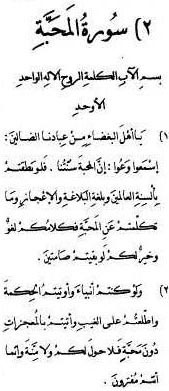 ٢) سُورَةُ الْمَحَبَّةِ
بسم الآب الكلمة الروح الاله الواحد
الأوحد
١) يَا أَهْلَ الْبَغْضَاءِ مِنْ عِبَادِنَا الضَّالِّينَ:
إِسْمَعُوا وَعُوا: إِنَّ الْمَحَبَّةَ سُنَّتُنَا. فَلَوْ نَطَقْتُمْ
بِأَلْسِنَةِ الْعَالَمِينَ وَبِلُغَةِ الْبَلَاغَةِ وَالْإِعْجَازِ وَمَا
تَكَلَّمْتُمْ عَنِ الْمَحَبَّةِ فَكَلَامُكُمْ لَغْوٌ
وَخَيْرٌ لَكُمْ لَوْ بَقِيتُمْ صَامِتِينَ.
٢) وَلَوْ كُنْتُمْ أَنْبِيَاءَ وَأُوتِيتُمُ الْحِكْمَةَ
وَاطَّلَعْتُمْ عَلَى الْغَيْبِ وَأَتَيْتُمْ بِالْمُعْجِزَاتِ
دُونَ مَحَبَّةٍ فَلَا حَوْلَ لَكُمْ وَلَا مِنَّةَ وَإِنَّمَا
أَنْتُمْ مُفْتَرُونَ.